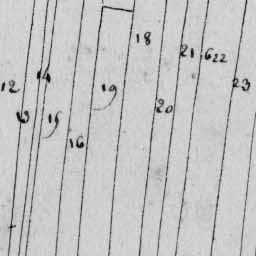 18
21 622
12 14 19 23
13 15 20
16